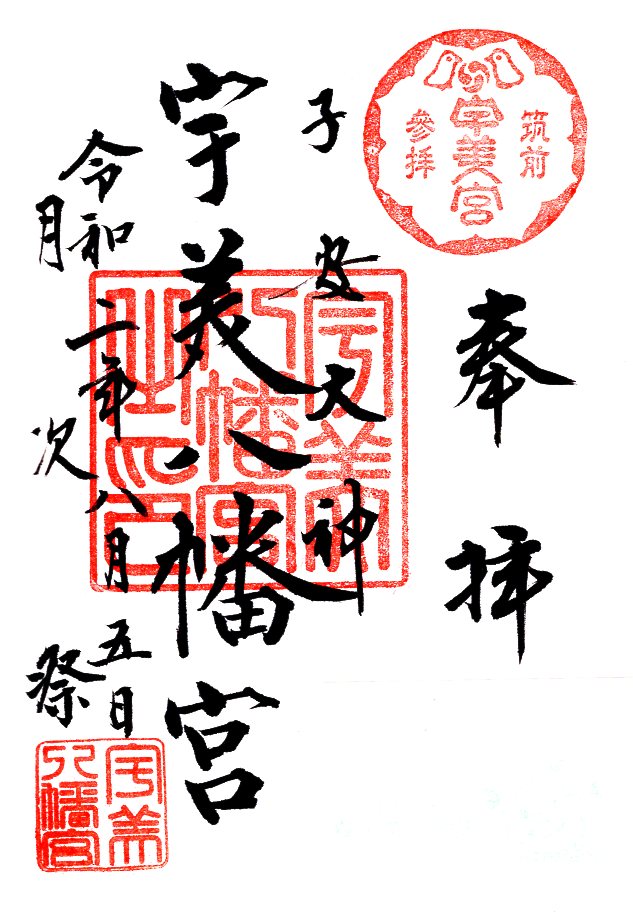 筑前
宇美宮
參拝
奉拝
子安大神
宇美八幡宮
令和二年八月五日
月次祭
宇美
八幡宮